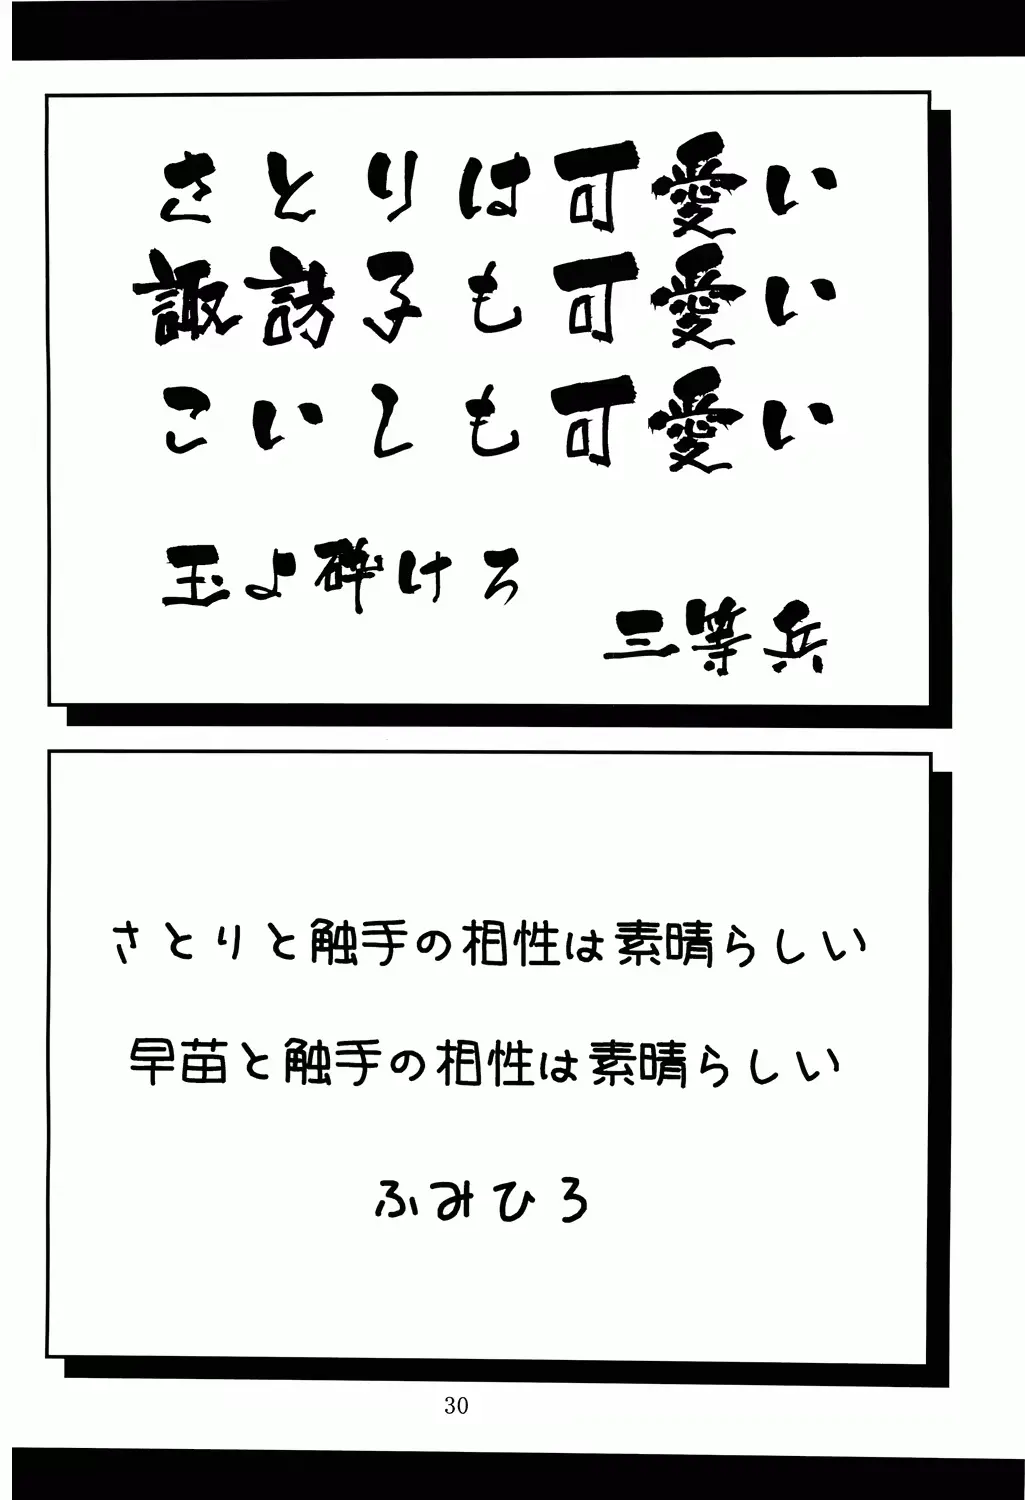 さとりは可愛い
諏訪子も可愛い
こいしも可愛い
玉よ砕けろ
三等兵
さとりと触手の相性は素晴らしい
早苗と触手の相性は素晴らしい
ふみひろ
30